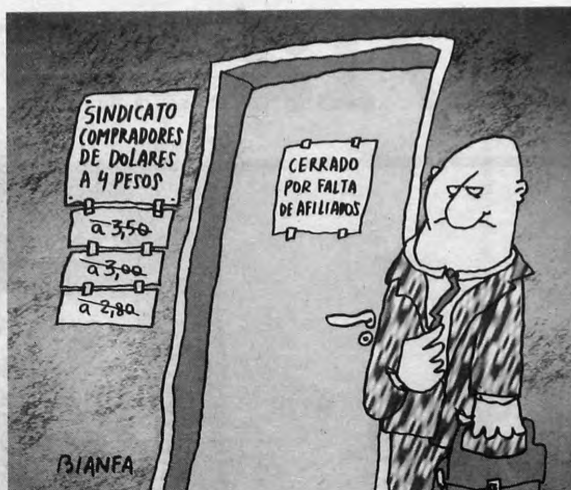 SINDICATO
COMPRADORES
DE DOLARES
A 4 PESOS
a 3,50
a 3,00
a 2,80
CERRADO
POR FALTA
DE AFILIADOS
BIANFA